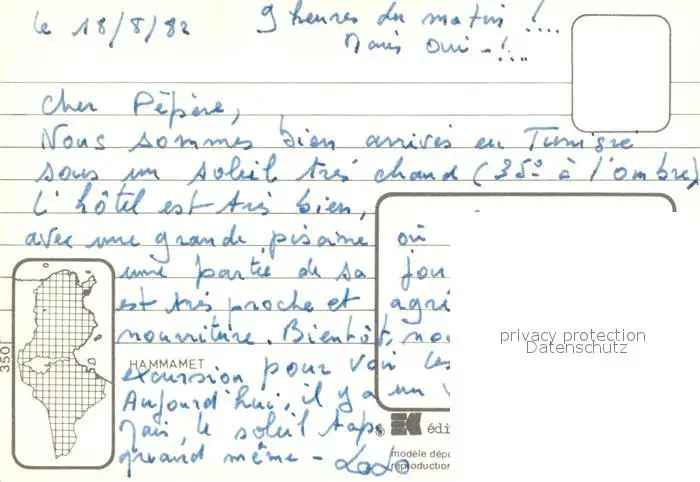 le 18/8/82 9 heures du matin !....
Mais oui - !...
Cher Pépère,
Nous sommes bien arrivés en Tunisie
sous un soleil très chaud (35° à l'ombre)
L'hôtel est très bien,
avec une grande piscine où
une partie de sa jou
est très proche et agré
nourriture. Bientôt, no
excursion pour voir les
Aujourd'hui, il y a un v
Mais, le soleil tape
quand même - LoLo
HAMMAMET
350
privacy protection
Datenschutz
édi
modèle dépo
reproduction